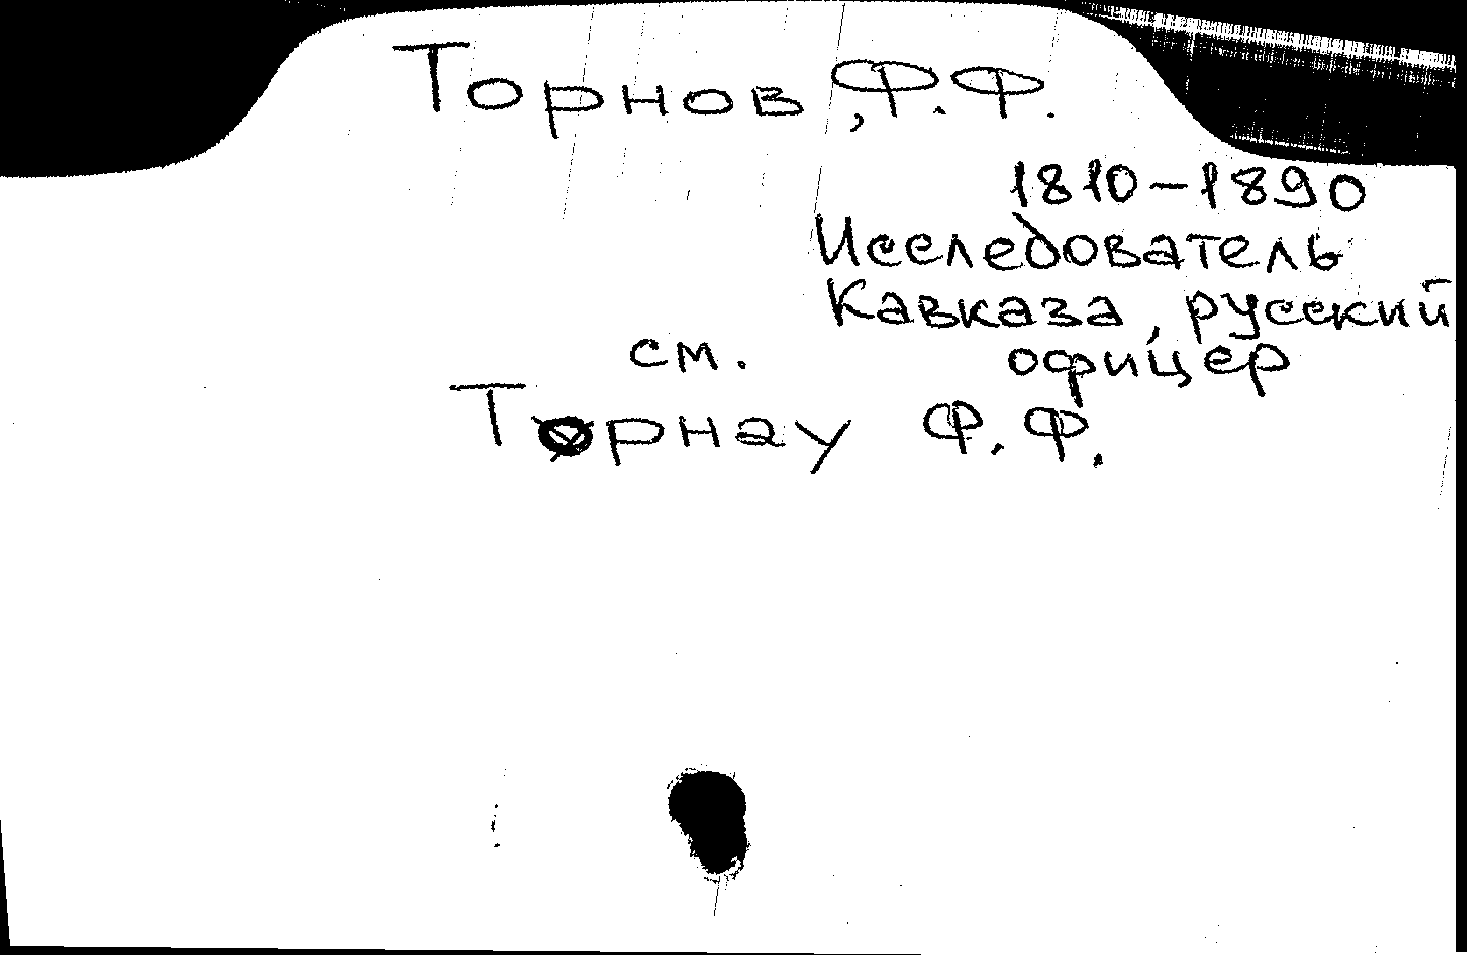 Торнов, Ф.Ф.
1810-1890
Исследователь
Кавказа, русский
офицер
см.
Торнау Ф.Ф.